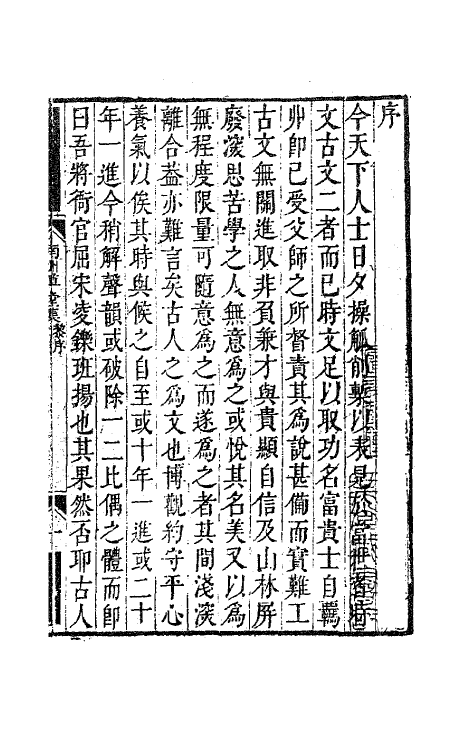 序
今天下人士日夕操觚削槧以表見於當世者時
文古文二者而已時文足以取功名富貴士自羈
丱即已受父師之所督責其為說甚備而實難工
古文無關進取非負兼才與貴顯自信及山林屏
廢深思苦學之人無意為之或悅其名美又以為
無程度限量可隨意為之而遂為之者其間淺深
離合葢亦難言矣古人之為文也博觀約守平心
養氣以俟其時與候之自至或十年一進或二十
年一進今稍解聲韻或破除一二比偶之體而卽
曰吾將衙官屈宋凌鑠班揚也其果然否耶古人
集 序
一